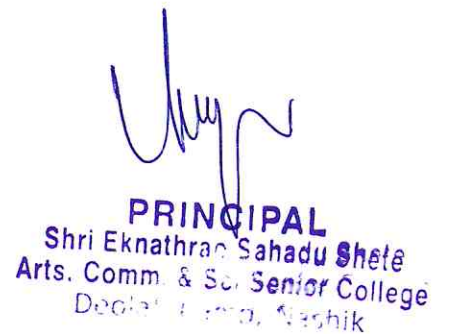 PRINCIPAL
Shri Eknathrao Sahadu Shete
Arts. Comm. & Sc. Senior College
Nashik